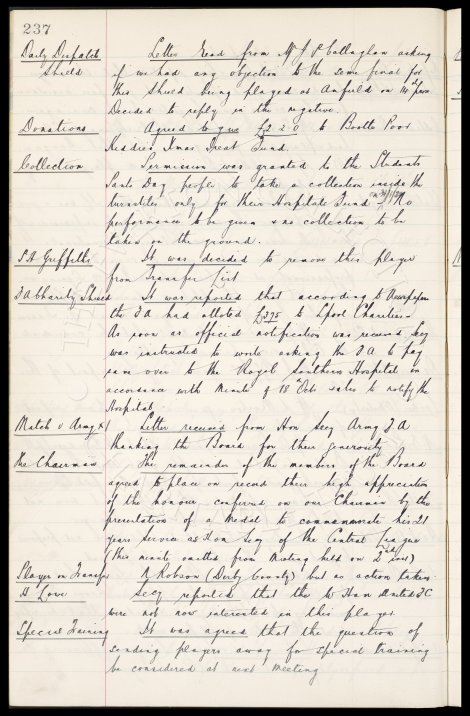 237
Daily Dispatch Letter read from Mr J P Callaghan asking
Shield if we had any objection to the semi final for
this Shield being played at Anfield on
Decided to reply in the negative.
Donations Agreed to give £2 2 0 to Bootle Poor
Kiddies Xmas Treat Fund.
Collection Permission was granted to the Students
Panto Day people to take a collection inside the
turnstiles only for their Hospitals Fund No
performance to be given & no collection to be
taken on the ground.
S A Griffiths It was decided to remove this player
from Transfer List
FA Charity Shield It was reported that according to Newspapers
the FA had alloted £375 to Lpool Charities
As soon as official notification was received Secy
was instructed to write asking the FA to pay
same over to the Royal Southern Hospital in
accordance with Minute of 18 Octr & also to notify the
Hospital
Match v Army XI Letter received from Hon Secy Army FA
thanking the Board for their generosity
The Chairman The remainder of the members of the Board
agreed to place on record their high appreciation
of the honour conferred on our Chairman by the
presentation of a Medal to commemorate his 21
years service as Hon Secy of the Central League
(this minute omitted from Meeting held on 2nd inst)
Player on Transfer R Robson (Derby County) but no action taken
H Lowe Secy reported that the W Ham United FC
were not now interested in this player
Special Training It was agreed that the question of
sending players away for special training
be considered at next meeting